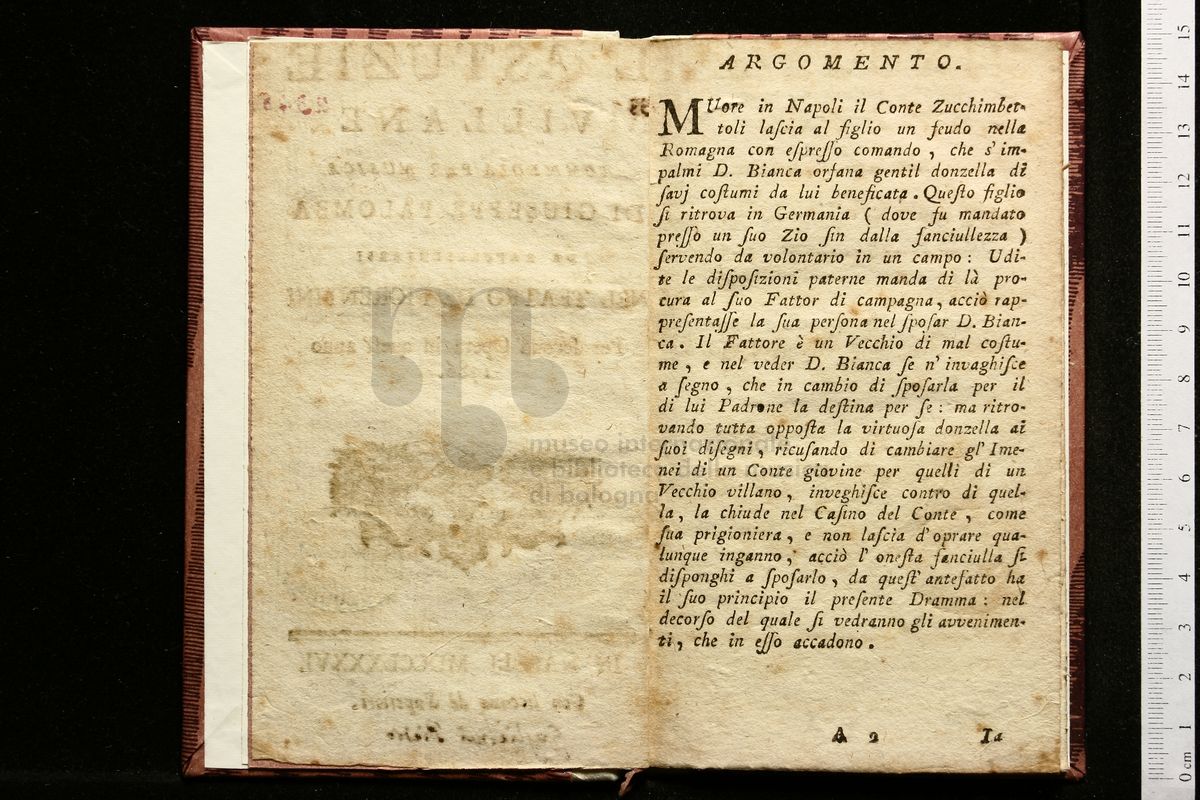 ARGOMENTO.
MUore in Napoli il Conte Zucchimbet-
toli laſcia al figlio un feudo nella
Romagna con eſpreſſo comando, che s'im-
palmi D. Bianca orfana gentil donzella di
ſavj coſtumi da lui beneficata. Queſto figlio
ſi ritrova in Germania (dove fu mandato
preſſo un ſuo Zio ſin dalla fanciullezza)
ſervendo da volontario in un campo: Udi-
te le diſpoſizioni paterne manda di là pro-
cura al ſuo Fattor di campagna, acciò rap-
preſentaſſe la ſua perſona nel ſpoſar D. Bian-
ca. Il Fattore è un Vecchio di mal coſtu-
me, e nel veder D. Bianca ſe n'invaghiſce
a ſegno, che in cambio di ſpoſarla per il
di lui Padrone la deſtina per ſe: ma ritro-
vando tutta oppoſta la virtuoſa donzella ai
ſuoi diſegni, ricuſando di cambiare gl'Ime-
nei di un Conte giovine per quelli di un
Vecchio villano, inveghiſce contro di quel-
la, la chiude nel Caſino del Conte, come
ſua prigioniera, e non laſcia d'oprare qua-
lunque inganno, acciò l'oneſta fanciulla ſi
diſponghi a ſpoſarlo, da queſt'antefatto ha
il ſuo principio il preſente Dramma: nel
decorſo del quale ſi vedranno gli avvenimen-
ti, che in eſſo accadono.
A 2 La
museo internazionale
e biblioteca della musica
di bologna
0 cm 1 2 3 4 5 6 7 8 9 10 11 12 13 14 15